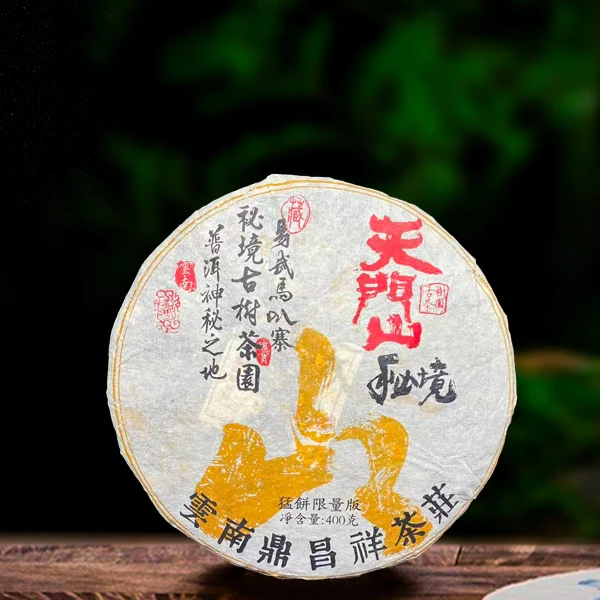 天門山
秘境
藏
易武馬叭寨
秘境古樹茶園
普洱神秘之地
雲南
山
猛餅限量版
淨含量:400克
雲南鼎昌祥茶莊